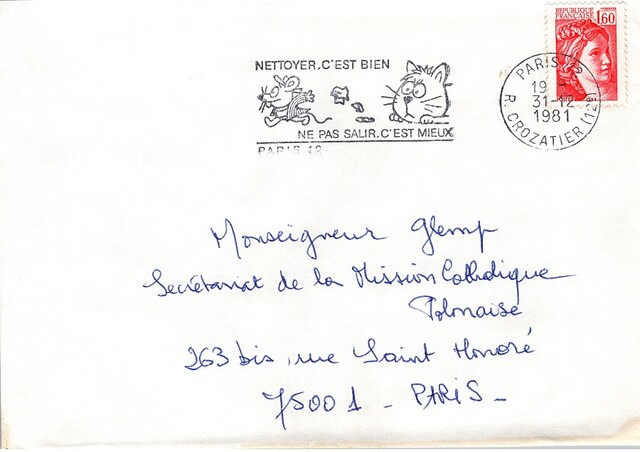 REPUBLIQUE
FRANCAISE 1,60
NETTOYER.C'EST BIEN
NE PAS SALIR.C'EST MIEUX
PARIS 12
PARIS
19
31-12
1981
R. CROZATIER (12e)
Monseigneur Glemp
Secrétariat de la Mission Catholique
Polonaise
263 bis, rue Saint Honoré
75001 - PARIS -